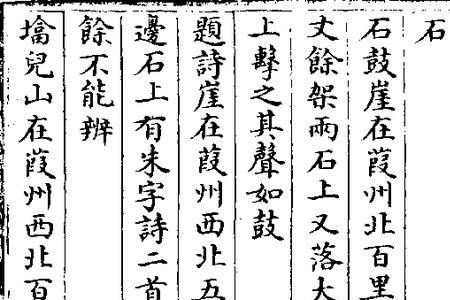 石
石鼓崖在葭州北百里
丈餘架兩石上又落大
上擊之其聲如鼓
題詩崖在葭州西北五
邊石上有朱字詩二首
餘不能辨
墕兒山在葭州西北百